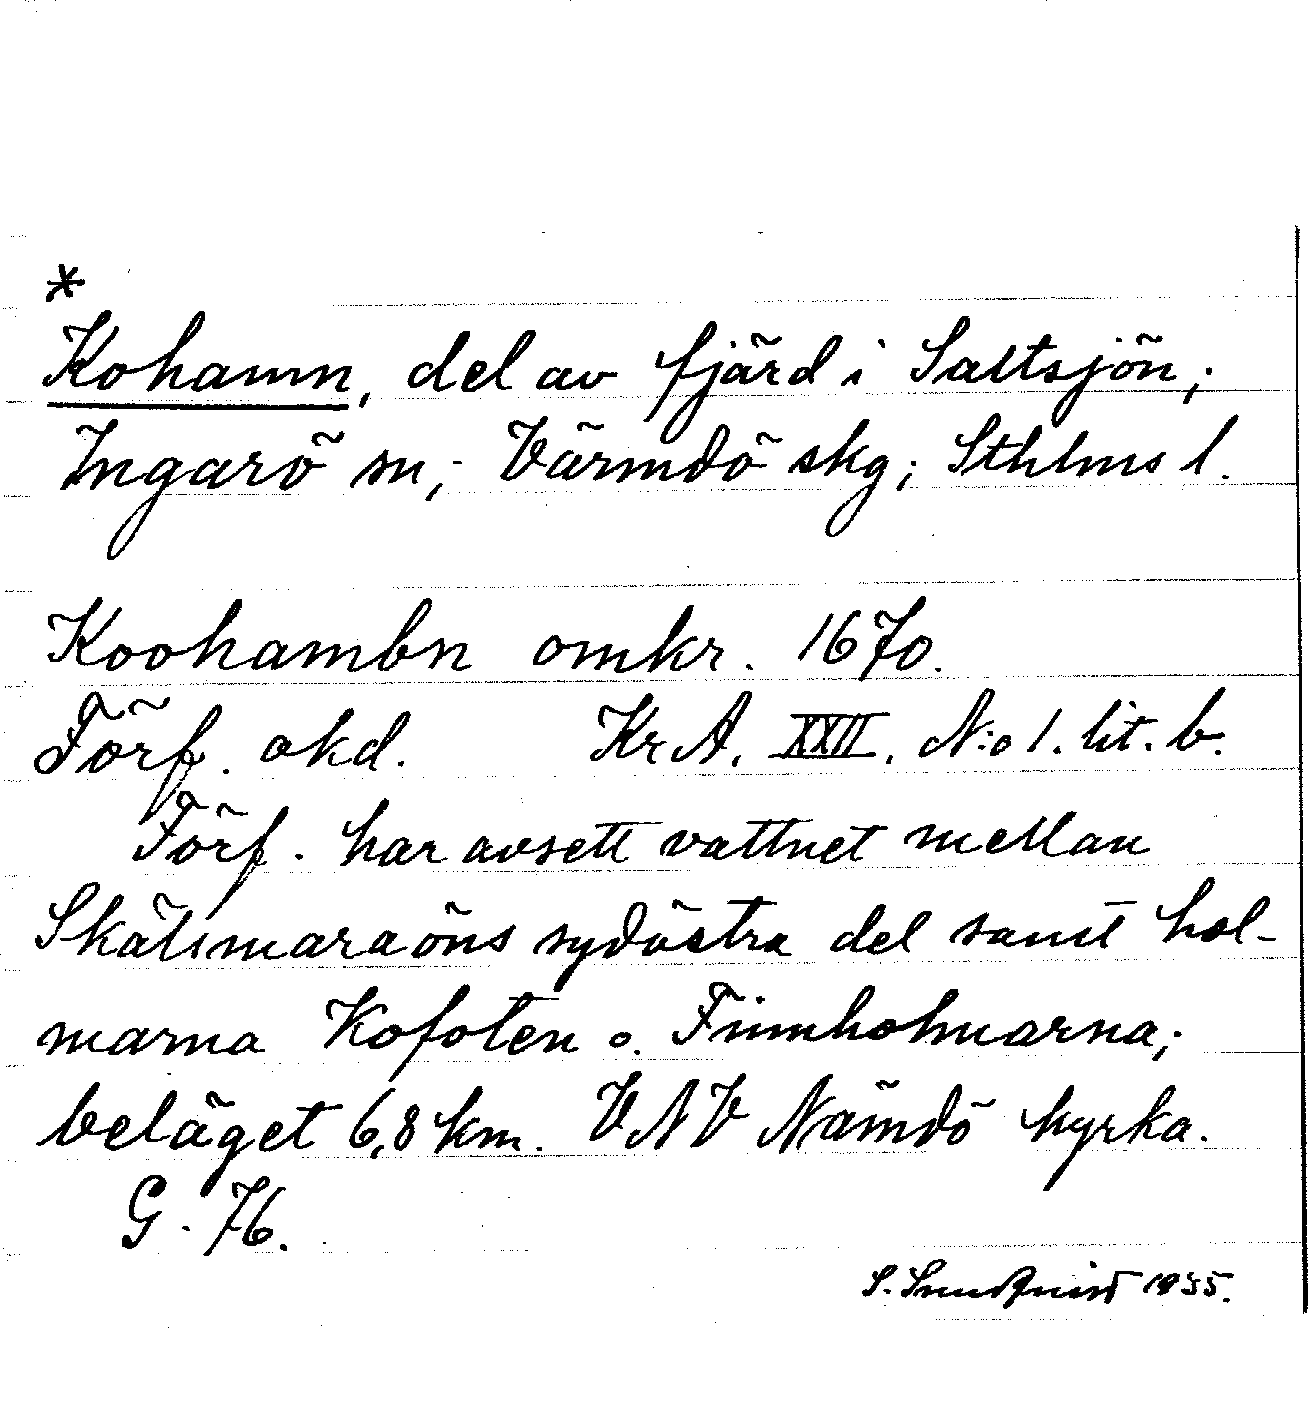 *
Kohamn, del av fjärd i Saltsjön;
Ingarö sn; Värmdö skg; Sthlms l.
Koohambn omkr. 1670.
Förf. okd. KrA. XXII. N:o 1. lit. b.
Förf. har avsett vattnet mellan
Skälsmaraöns sydöstra del samt hol-
marna Kofoten o. Finnholmarna;
beläget 6,8 km. VNV Nämdö kyrka.
G. 76.
S. Sundqvist 1935.